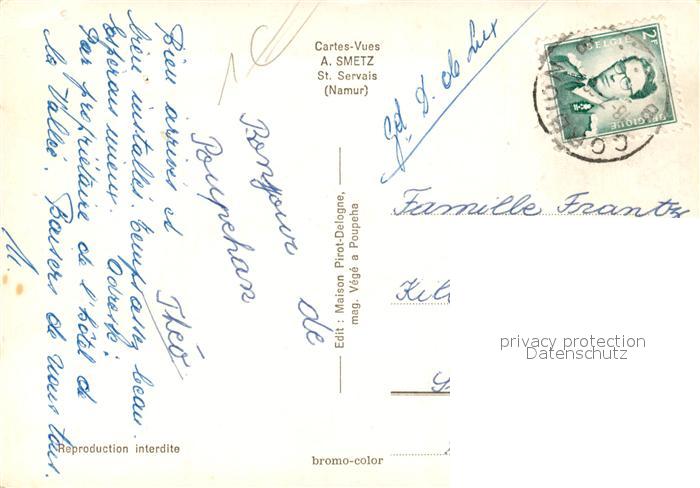 Cartes-Vues
A. SMETZ
St. Servais
(Namur)
Gd. D. de Lux
2F
BELGIE
BELGIQUE
Bien arrivés et
bien installés. Temps assez beau.
Espérons mieux. Adresse:
par propriétaire de l'hôtel de
la Vallée. Baisers de nous tous.
M.
Bonjour de
Poupehan
Théo
Edit : Maison Pirot-Delogne,
mag. Végé a Poupeha
Famille Frantz
privacy protection
Datenschutz
Reproduction interdite
bromo-color